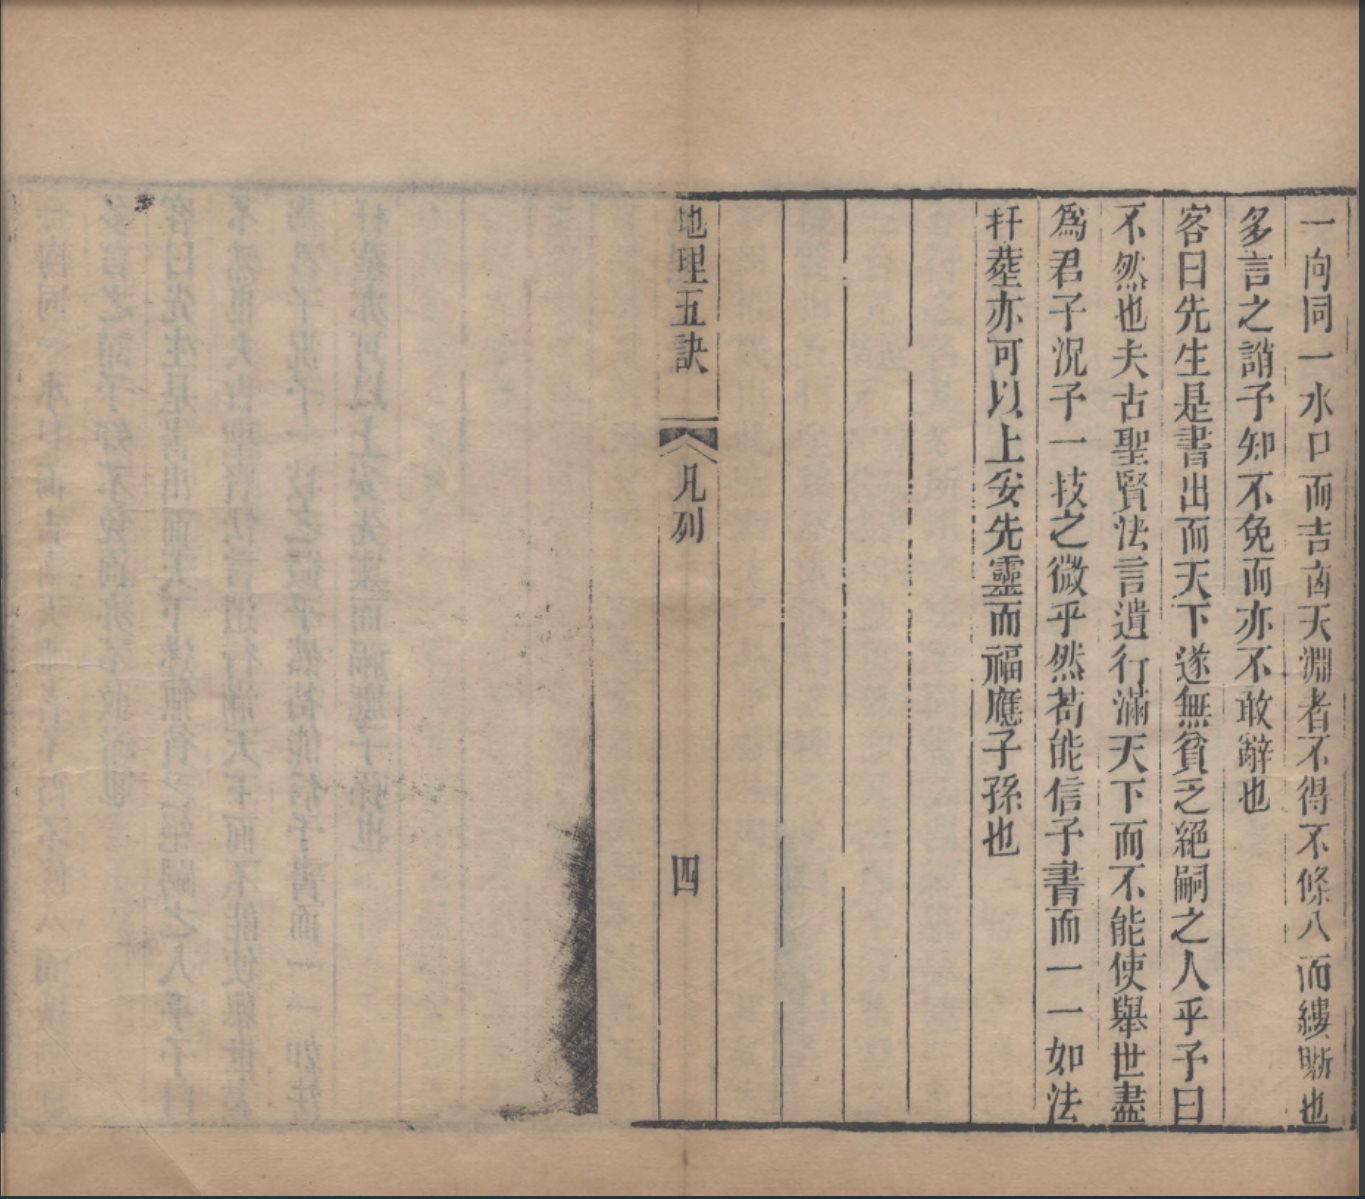 一向同一水口而吉凶天淵者不得不條入而縷晰也
多言之誚予知不免而亦不敢辭也
客曰先生是書出而天下遂無貧乏絕嗣之人乎予曰
不然也夫古聖賢法言遺行滿天下而不能使舉世盡
爲君子況予一技之微乎然苟能信予書而一一如法
扦塟亦可以上妥先靈而福應子孫也
地理五訣
凡列
四